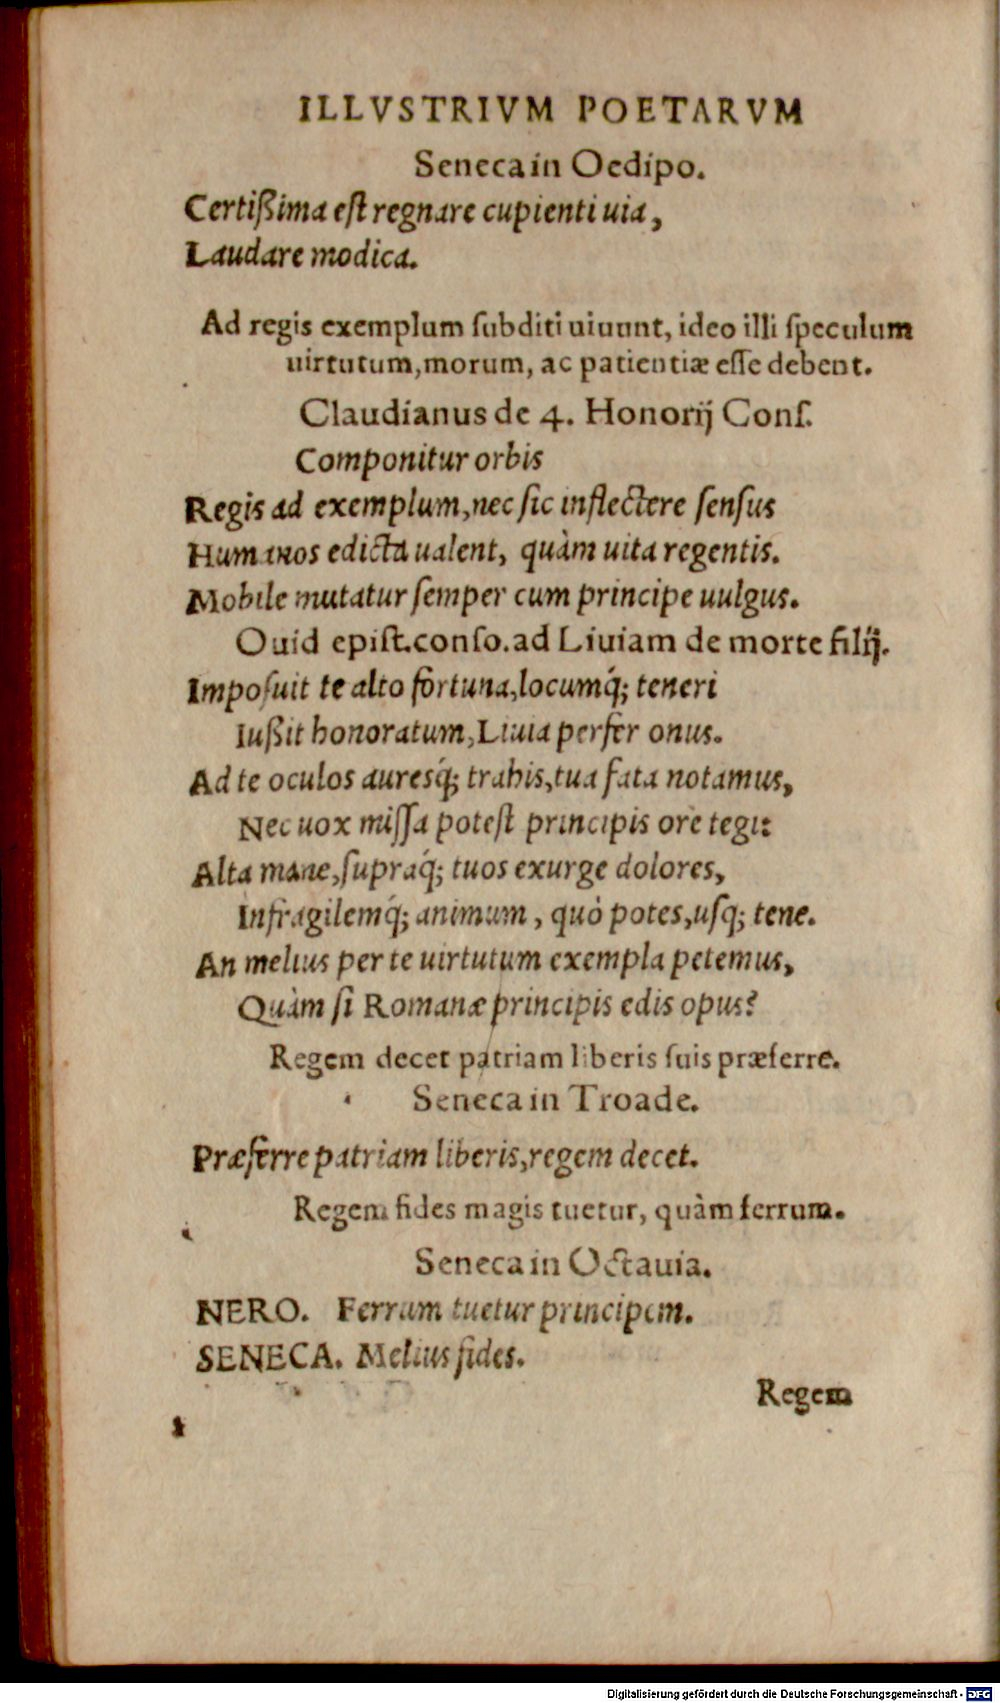 ILLVSTRIVM POETARVM
Seneca in Oedipo.
Certißima eſt regnare cupienti uia,
Laudare modica.
Ad regis exemplum ſubditi uiuunt, ideo illi ſpeculum
uirtutum, morum, ac patientiæ eſſe debent.
Claudianus de 4. Honorij Conſ.
Componitur orbis
Regis ad exemplum, nec ſic inflectere ſenſus
Humanos edicta ualent, quàm uita regentis.
Mobile mutatur ſemper cum principe uulgus.
Ouid epiſt. conſo. ad Liuiam de morte filij.
Impoſuit te alto fortuna, locumq́; teneri
Iußit honoratum, Liuia perfer onus.
Ad te oculos auresq́; trahis, tua fata notamus,
Nec uox miſſa poteſt principis ore tegi:
Alta mane, ſupraq́; tuos exurge dolores,
Infragilemq́; animum, quò potes, uſq; tene.
An melius per te uirtutum exempla petemus,
Quàm ſi Romanæ principis edis opus?
Regem decet patriam liberis ſuis præferre.
Seneca in Troade.
Præferre patriam liberis, regem decet.
Regem fides magis tuetur, quàm ferrum.
Seneca in Octauia.
NERO. Ferrum tuetur principem.
SENECA. Melius fides.
Regem
Digitalisierung gefördert durch die Deutsche Forschungsgemeinschaft - DFG